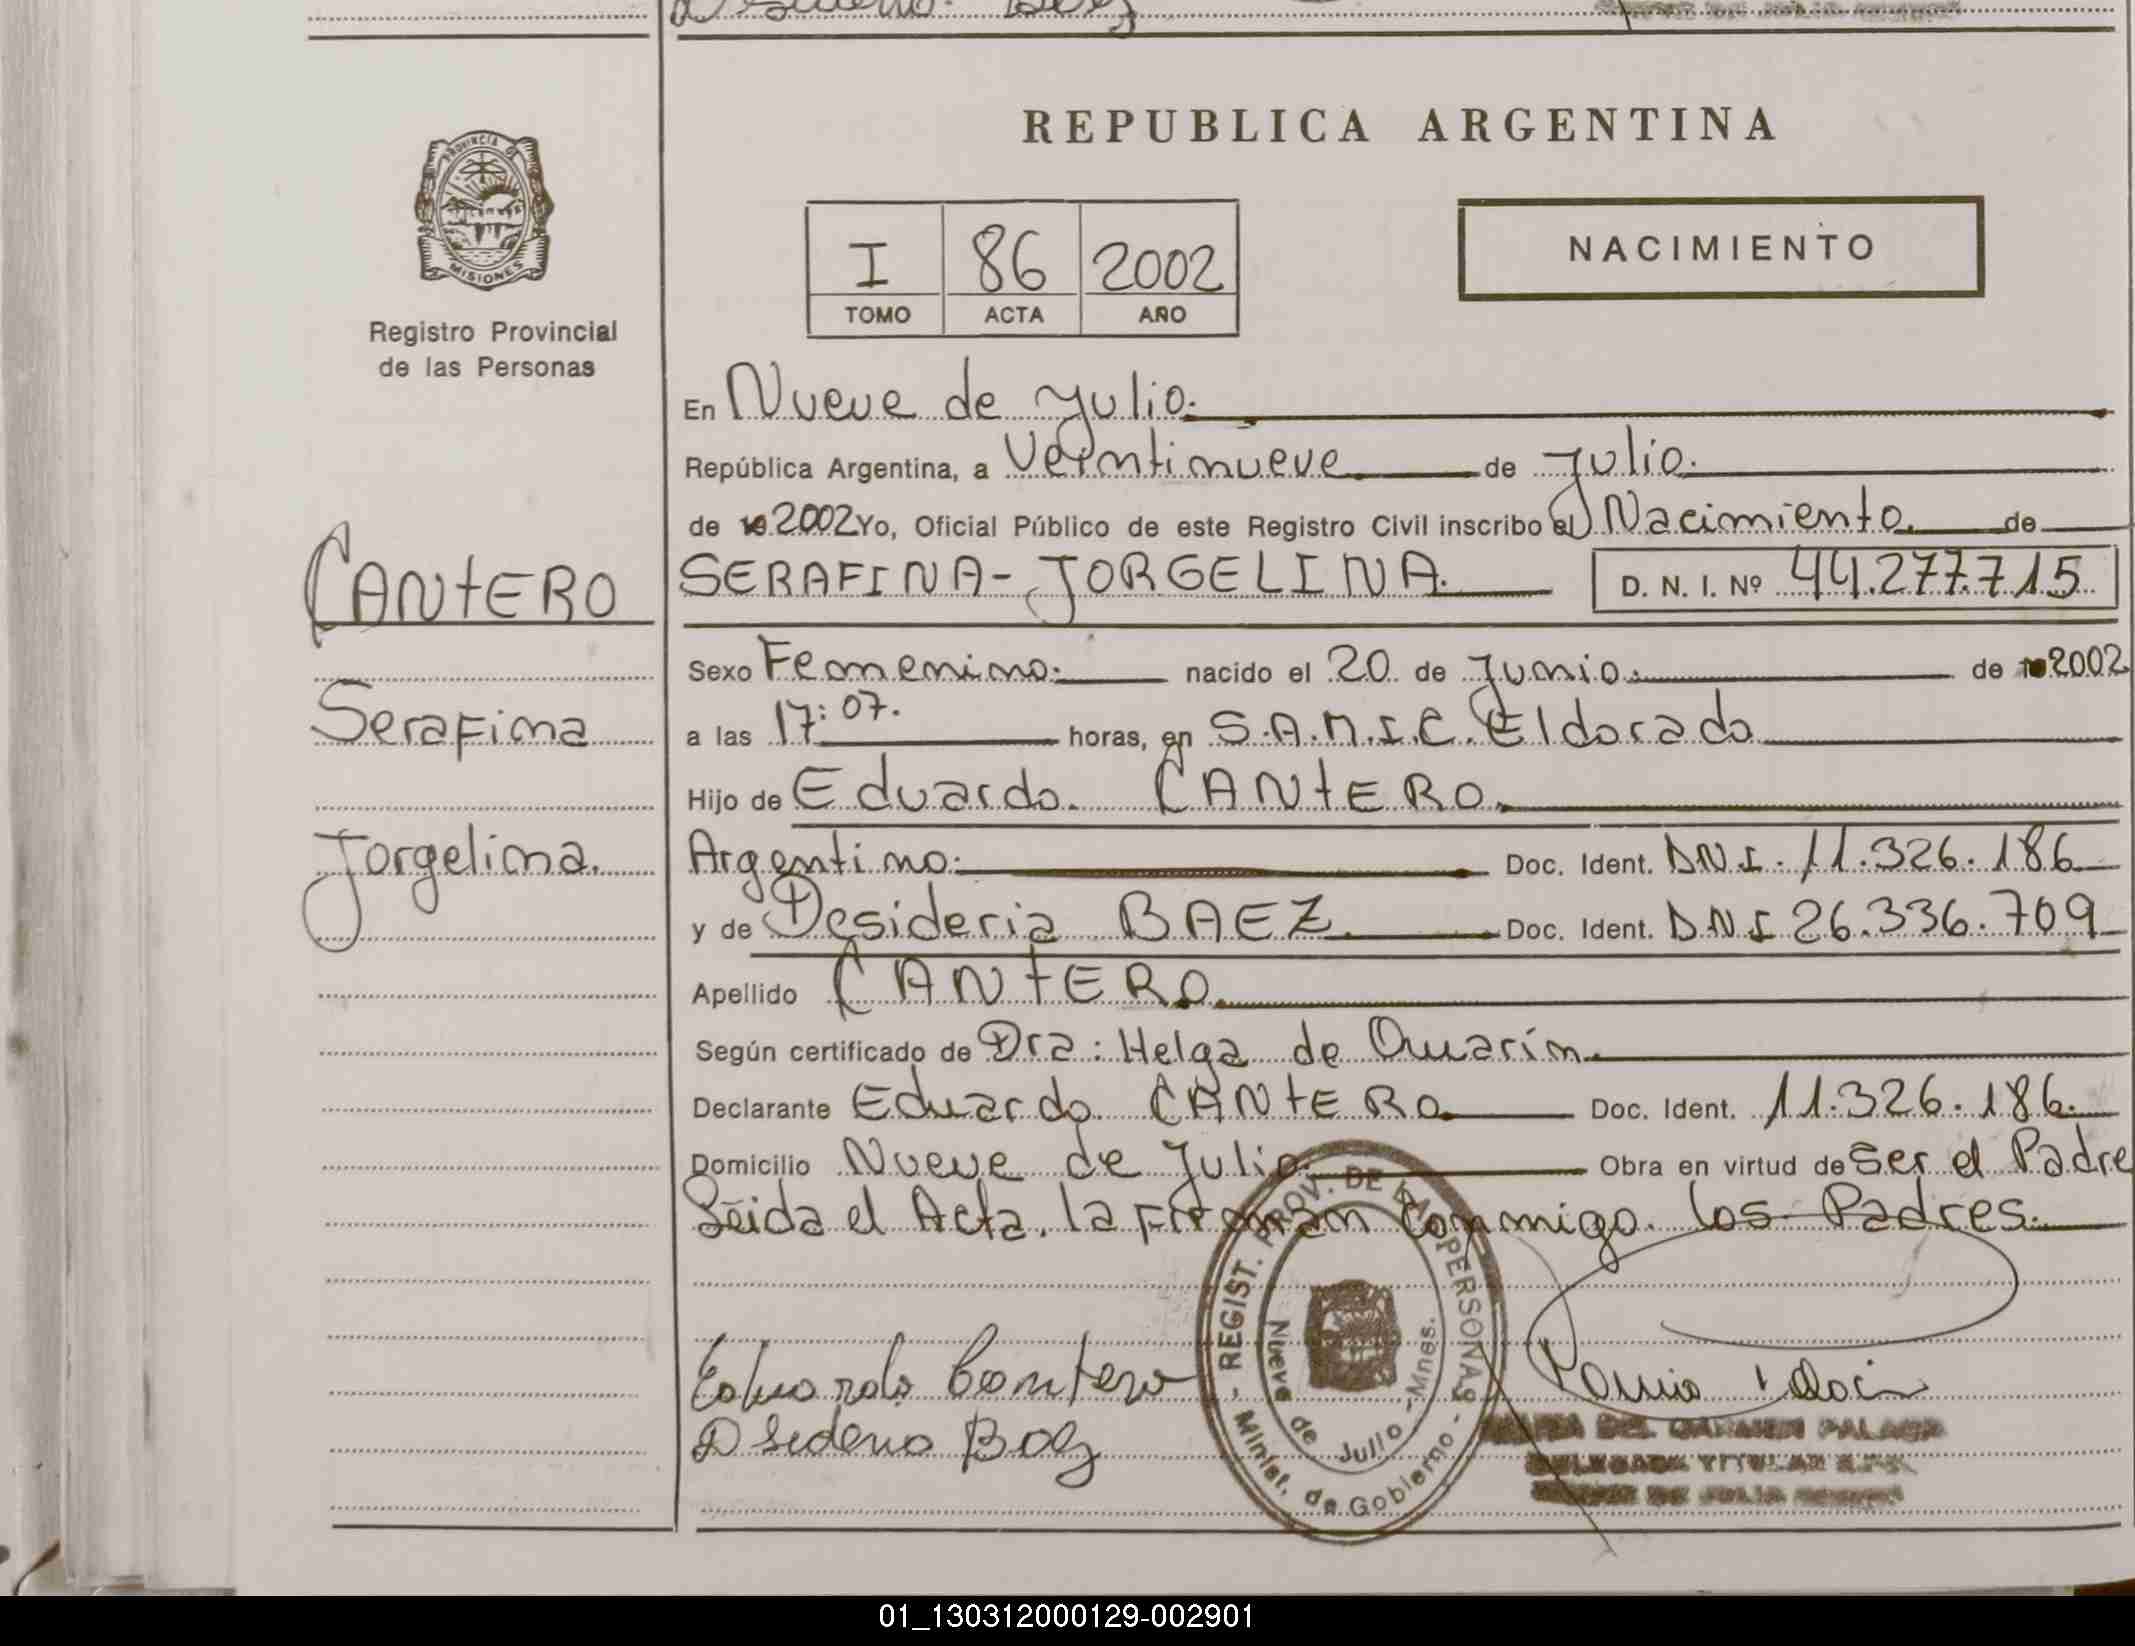 REPUBLICA ARGENTINA
PROVINCIA DE
MISIONES
Registro Provincial
de las Personas
I 86 2002
TOMO ACTA AÑO
NACIMIENTO
En Nueve de Julio.
República Argentina, a Veintinueve de Julio.
de 2002 Yo, Oficial Público de este Registro Civil inscribo el Nacimiento. de
CANTERO
Serafina
Jorgelina.
SERAFINA - JORGELINA. D. N. I. Nº 44.277.715
Sexo Femenino. nacido el 20 de Junio. de 2002
a las 17:07. horas, en S.A.M.I.C. Eldorado
Hijo de Eduardo. CANTERO.
Argentino. Doc. Ident. DNI. 11.326.186
y de Desideria BAEZ. Doc. Ident. DNI 26.336.709
Apellido CANTERO.
Según certificado de Dra: Helga de
Declarante Eduardo. CANTERO. Doc. Ident. 11.326.186.
Domicilio Nueve de Julio. Obra en virtud de Ser el Padre
Leida el Acta. la Firman Conmigo. los Padres.
Eduardo Cantero
REGIST. PROV. DE LAS PERSONAS
Nueve de Julio - Mnes.
Minist. de Gobierno
DEL CARMEN
DELEGADA TITULAR
DE JULIO
01_130312000129-002901